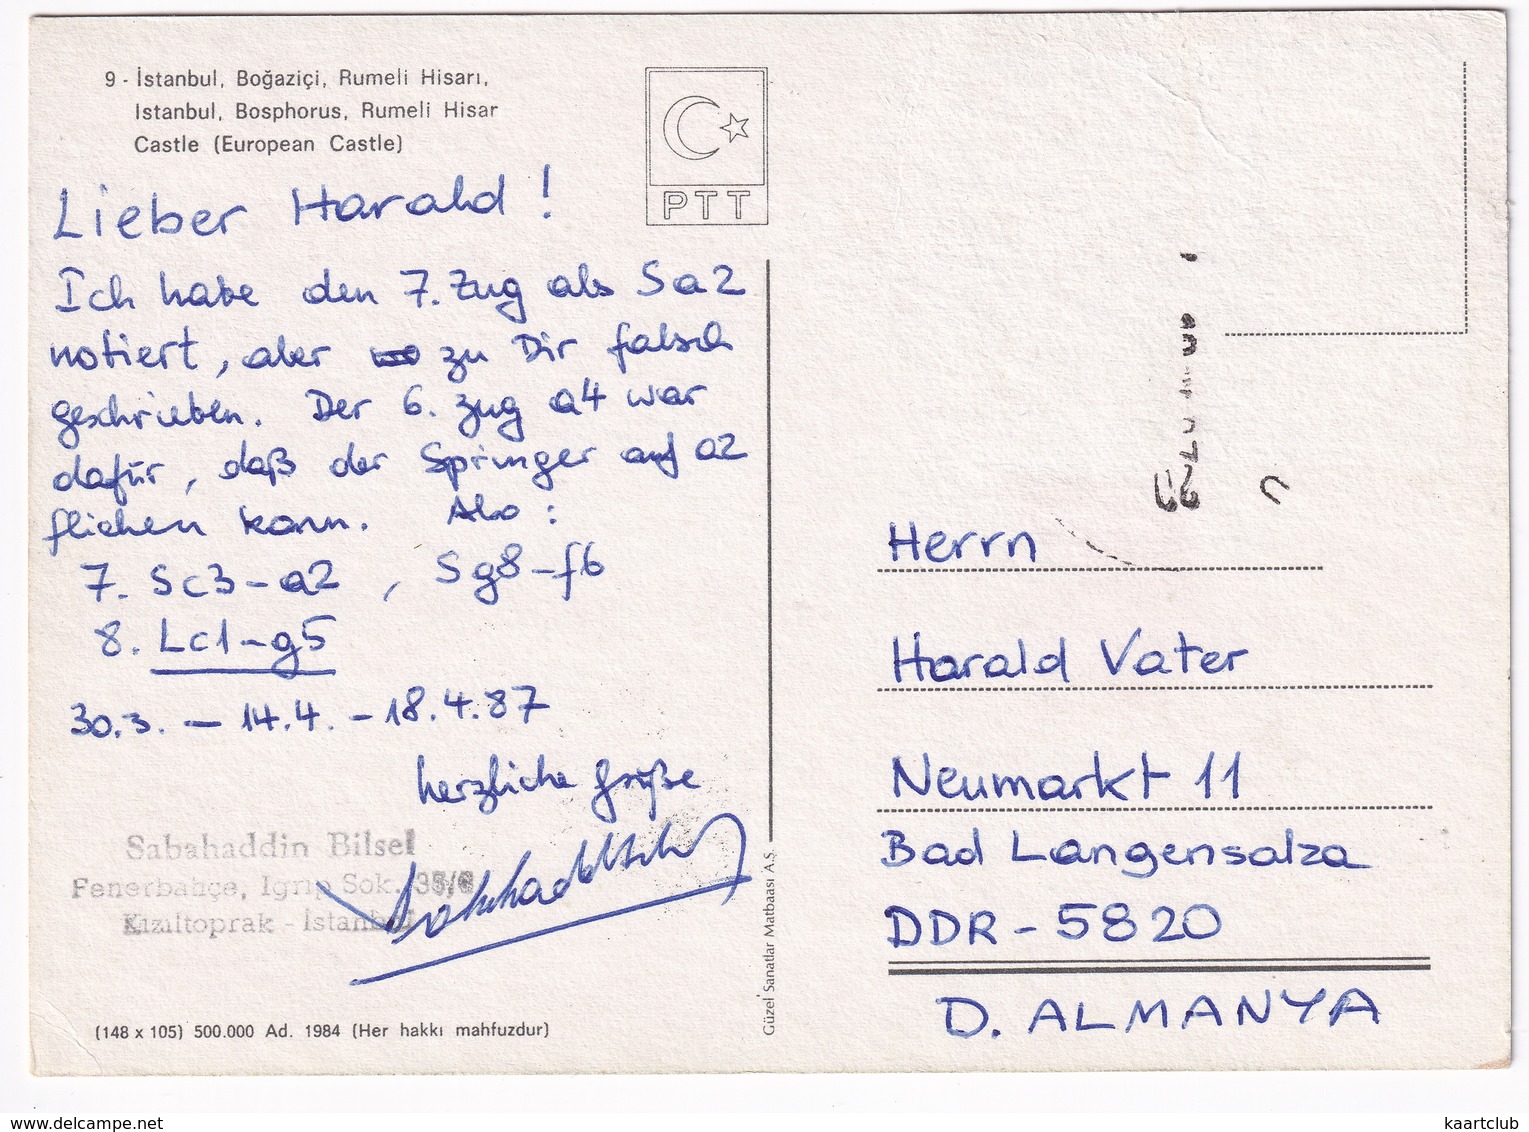 9 - İstanbul, Boğaziçi, Rumeli Hisarı,
Istanbul, Bosphorus, Rumeli Hisar
Castle (European Castle)
PTT
Lieber Harald !
Ich habe den 7. Zug als Sa2
notiert, aber zu Dir falsch
geschrieben. Der 6. Zug a4 war
dafür, daß der Springer auf a2
fliehen kann. Also :
7. Sc3-a2 , Sg8-f6
8. Lc1-g5
30.3. - 14.4. - 18.4.87
herzliche Grüße
Sabahaddin Bilsel
Fenerbahçe, Igrıp Sok. 35/6
Kızıltoprak - İstanbul
(148 x 105) 500.000 Ad. 1984 (Her hakkı mahfuzdur)
Güzel Sanatlar Matbaası A.Ş.
Herrn
Harald Vater
Neumarkt 11
Bad Langensalza
DDR - 5820
D. ALMANYA
kaartclub